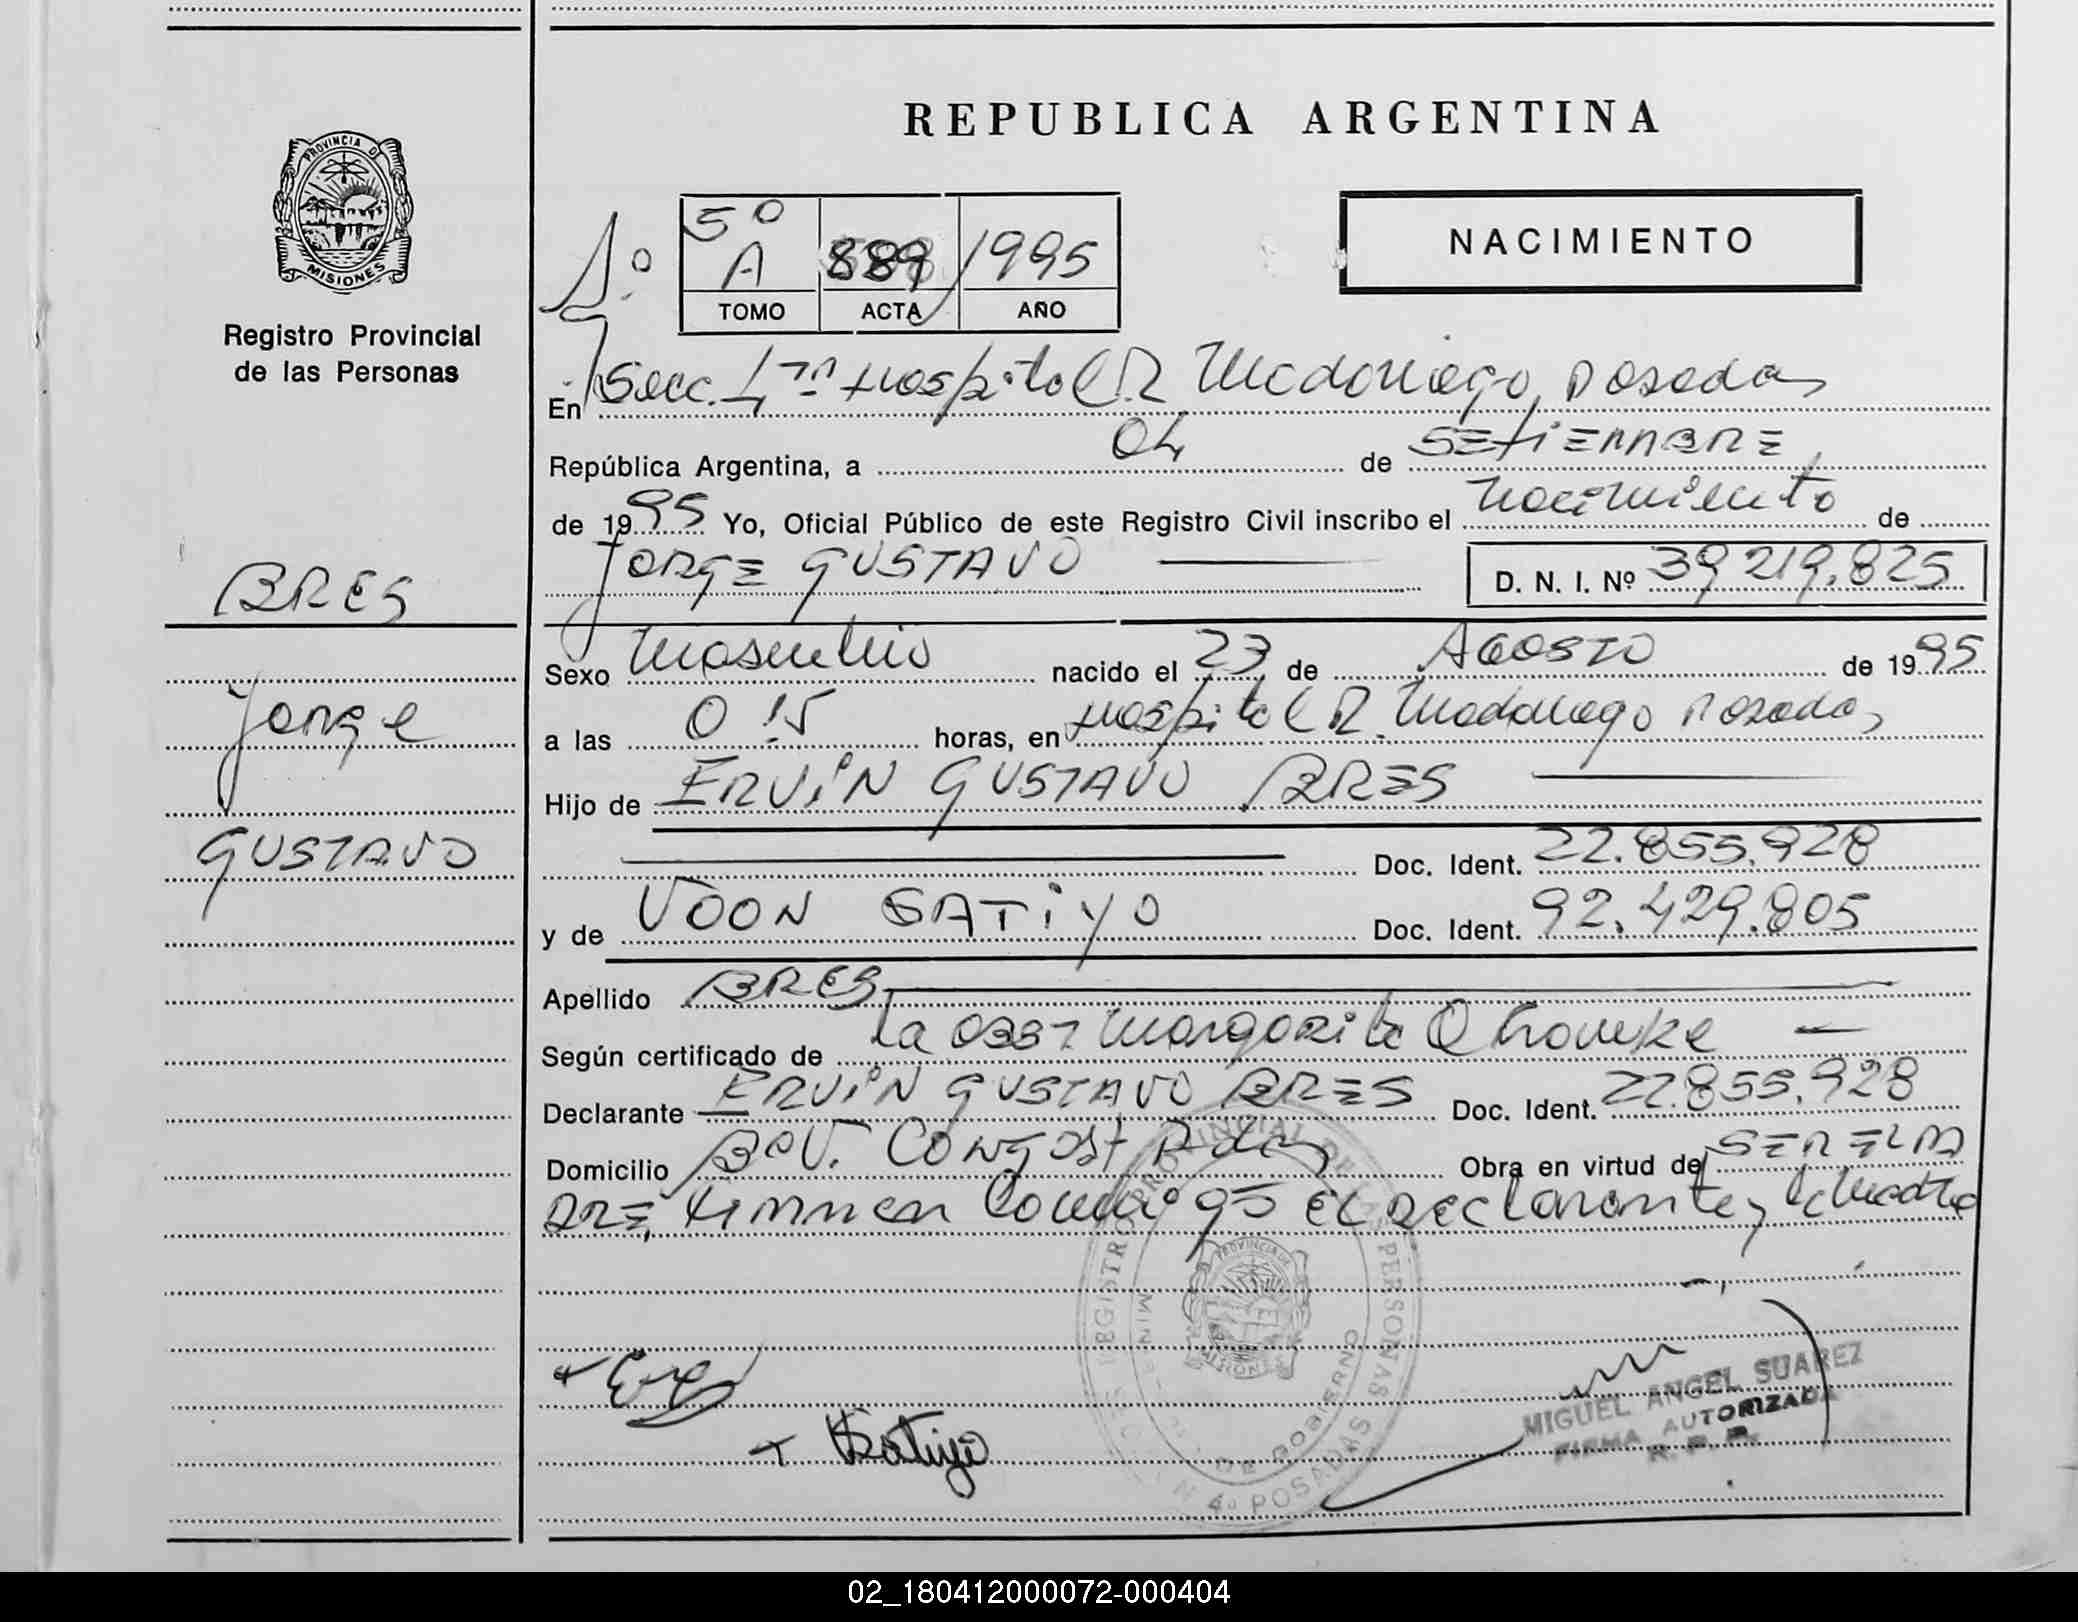 REPUBLICA ARGENTINA
PROVINCIA DE
MISIONES
Registro Provincial
de las Personas
NACIMIENTO
5º
A 889 1995
TOMO ACTA AÑO
En Secc. Hospital R. Madariaga, Posadas
República Argentina, a 04 de SETIEMBRE
de 1995 Yo, Oficial Público de este Registro Civil inscribo el nacimiento de
JORGE GUSTAVO D. N. I. Nº 39.219.825
BRES
Jorge
GUSTAVO
Sexo Masculino nacido el 23 de AGOSTO de 1995
a las 0:15 horas, en Hospital R. Madariaga Posadas
Hijo de ERVIN GUSTAVO BRES
Doc. Ident. 22.855.928
y de VOON SATIYO Doc. Ident. 92.429.805
Apellido BRES
Según certificado de La Obst Margarita
Declarante ERVIN GUSTAVO BRES Doc. Ident. 22.855.928
Domicilio Obra en virtud de SER EL PA
DRE, Firman Conmigo EL DECLARANTE y la Madre
REGISTRO PROVINCIAL DE LAS PERSONAS
PROVINCIA DE
MISIONES
DE GOBIERNO
4º POSADAS
Satiyo
MIGUEL ANGEL SUAREZ
FIRMA AUTORIZADA
R. P. P.
02_180412000072-000404